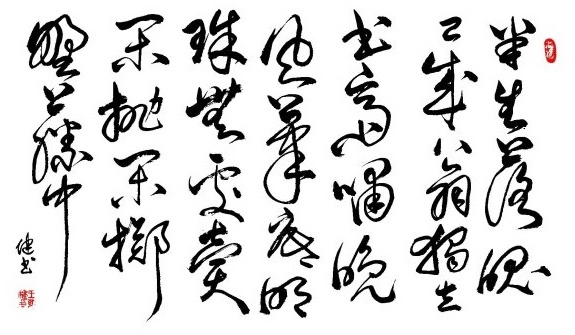 半生落魄
已成翁獨立
書齋嘯晚
風筆底明
珠無處賣
閑拋閑擲
野藤中
健書